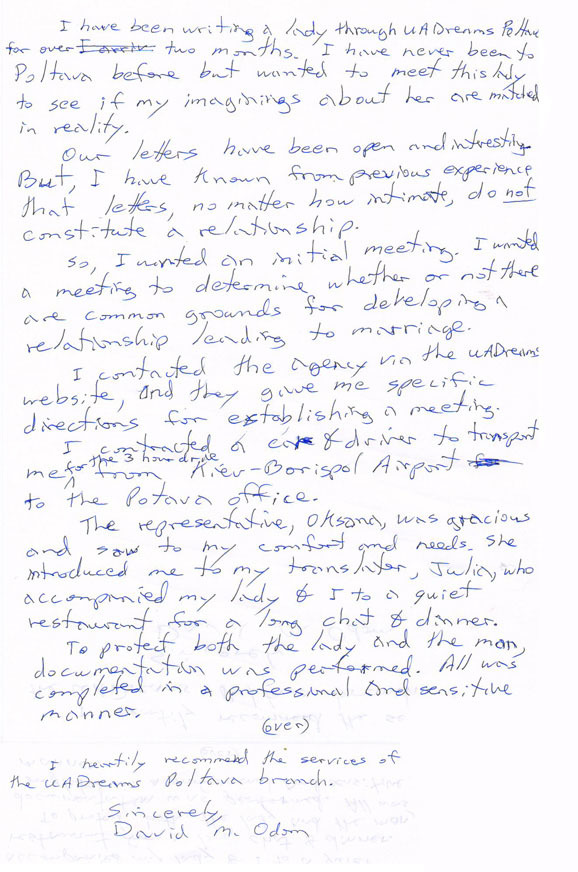 I have been writing a lady through UADreams Poltava
for over I arriv two months. I have never been to
Poltava before but wanted to meet this lady
to see if my imaginings about her are matched
in reality.
Our letters have been open and interesting.
But, I have known from previous experience
that letters, no matter how intimate, do not
constitute a relationship.
So, I wanted an initial meeting. I wanted
a meeting to determine whether or not there
are common grounds for developing a
relationship leading to marriage.
I contacted the agency via the UADreams
website, and they gave me specific
directions for establishing a meeting.
I contracted a car & driver to transport
me for the 3 hour drive from Kiev-Borispol Airport
to the Potava office.
The representative, Oksana, was gracious
and saw to my comfort and needs. She
introduced me to my translater, Julia, who
accompanied my lady & I to a quiet
restaurant for a long chat & dinner.
To protect both the lady and the man,
documentation was performed. All was
completed in a professional and sensitive
manner.
(over)
I heartily recommend the services of
the UADreams Poltava branch.
Sincerely,
David M. Odom